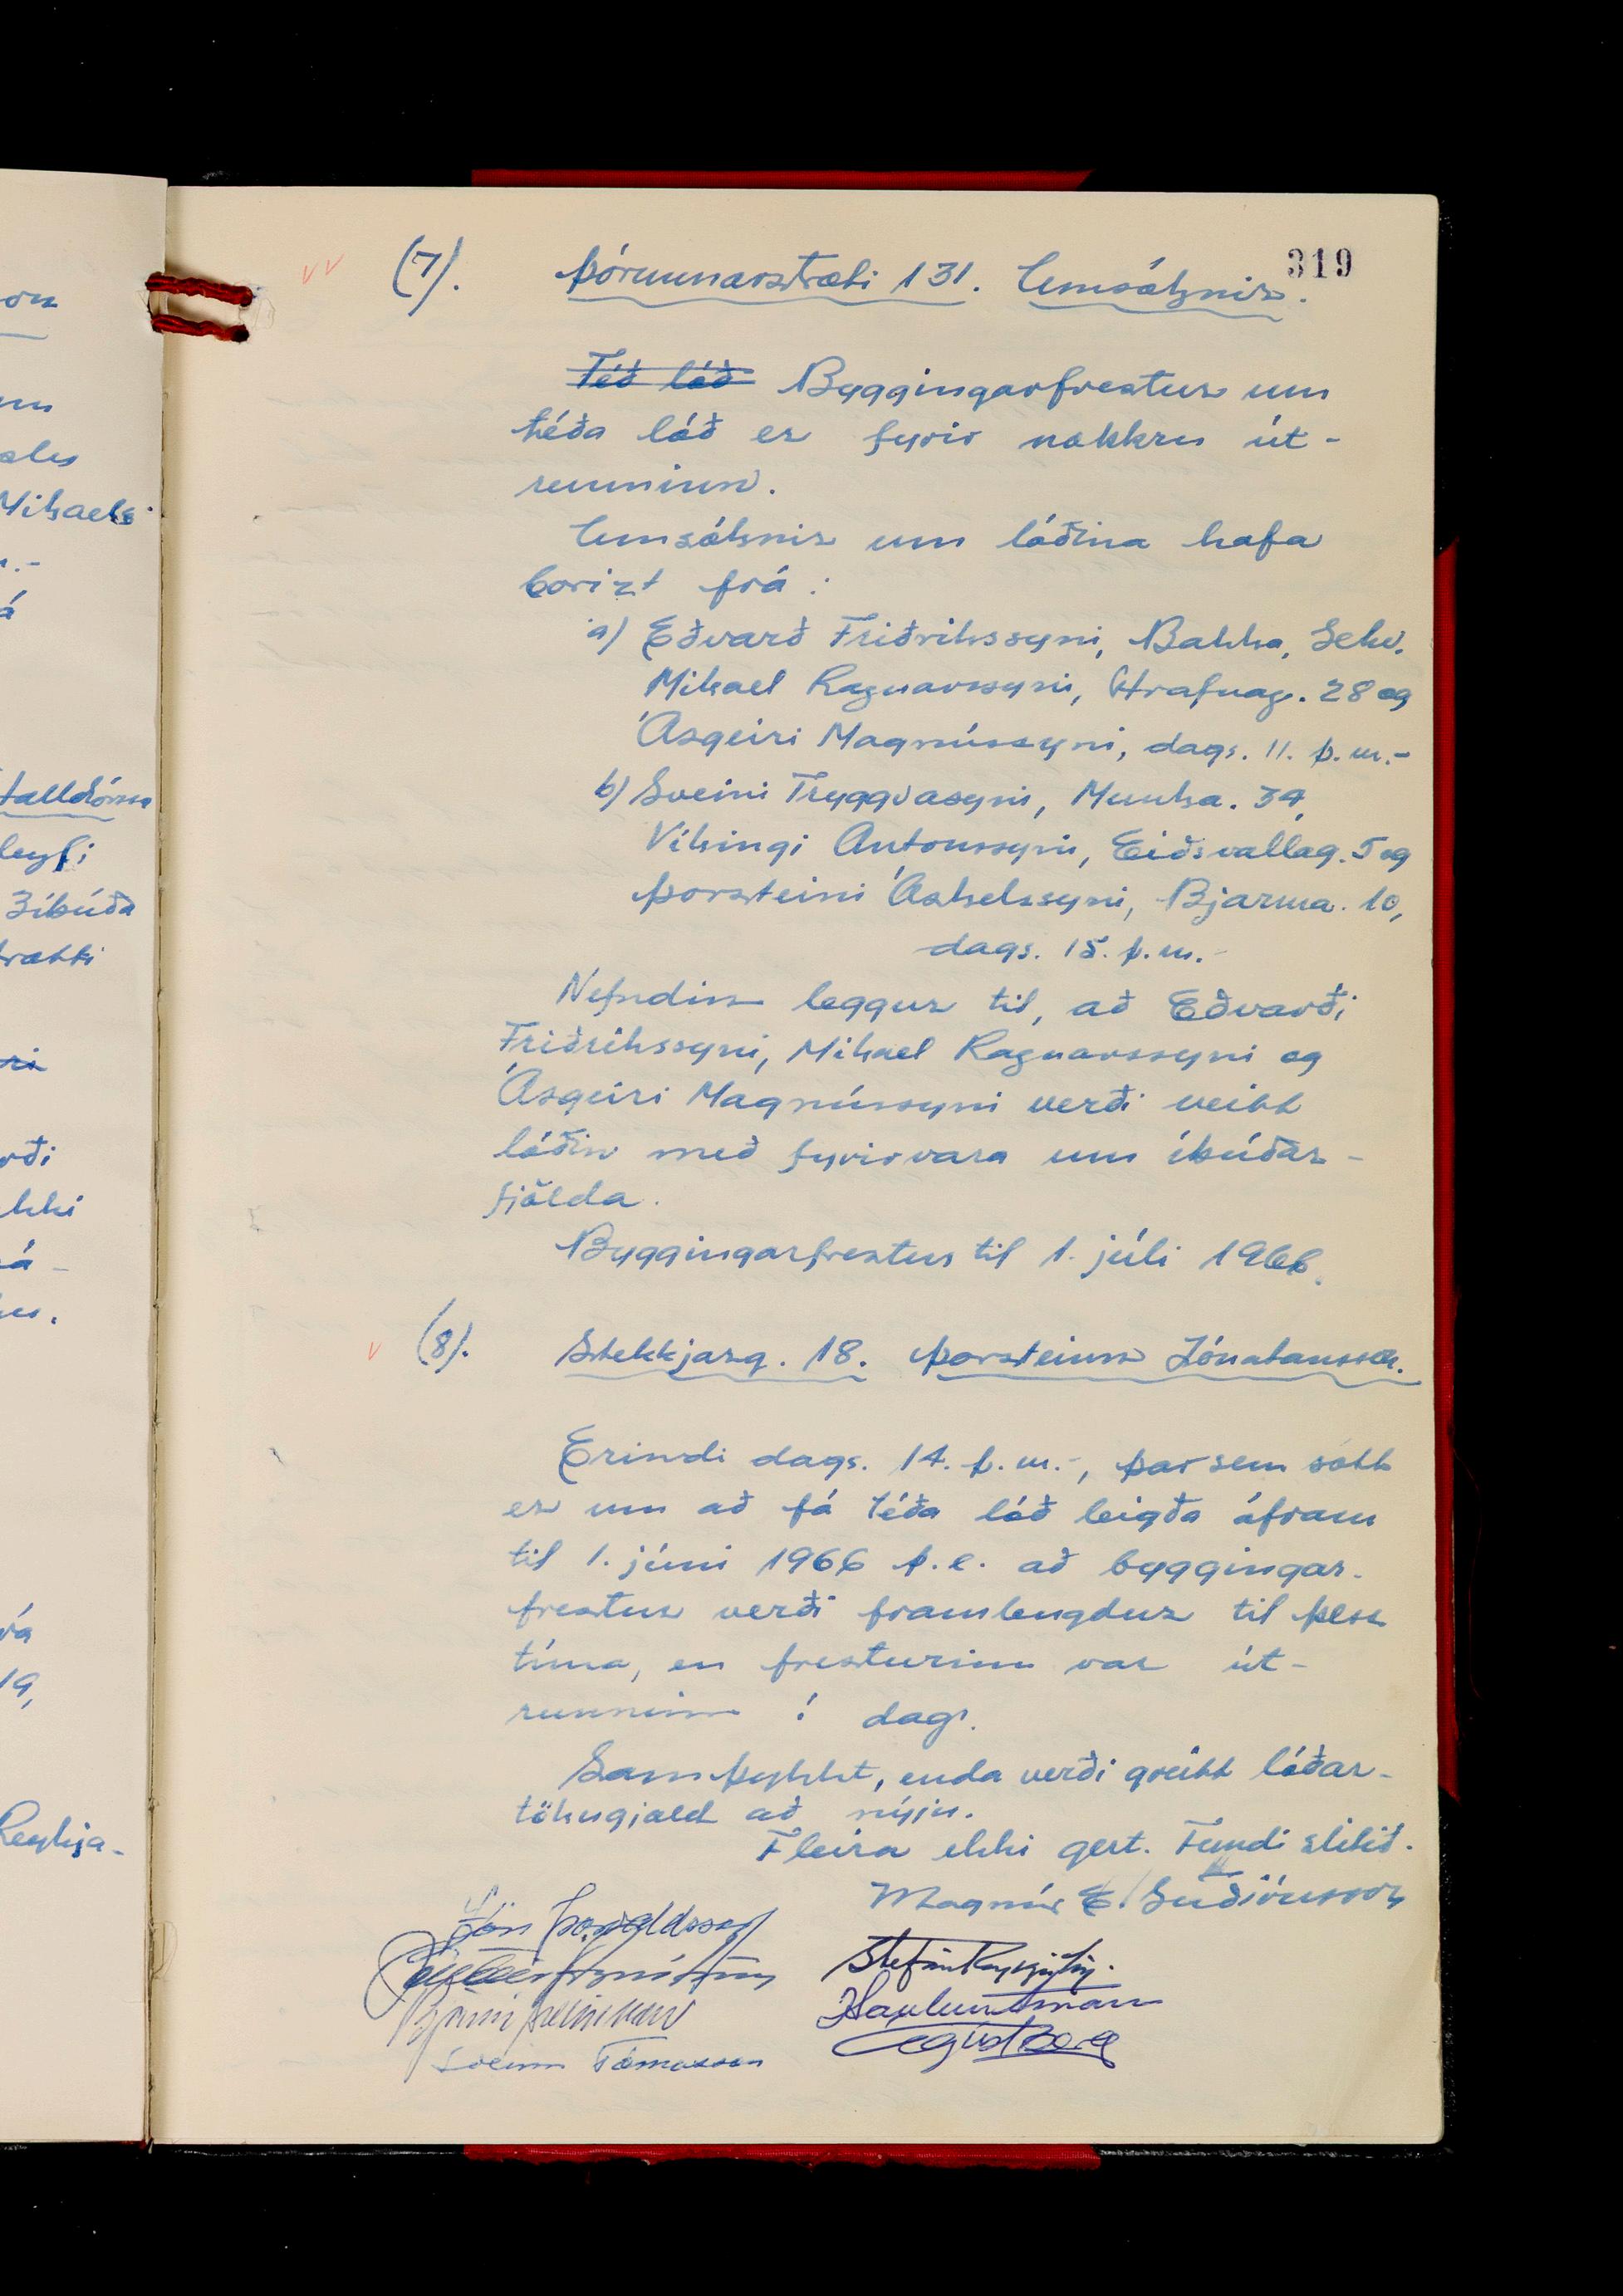 319
(7). Þórunnarstræti 131. Umsóknir.
Téð lóð Byggingarfrestur um
téða lóð er fyrir nokkru út-
runninn.
Umsóknir um lóðina hafa
borizt frá:
a) Eðvarð Friðrikssyni, Bakka, Gelu.
Mikael Ragnarssyni, Hrafnag. 28 og
Ásgeiri Magnússyni, dags. 11. þ.m.-
b) Sveini Tryggvasyni, Munka. 34,
Víkingi Antonssyni, Eiðsvallag. 5 og
Þorsteini Áskelssyni, Bjarma. 10,
dags. 15. þ.m.-
Nefndin leggur til, að Eðvarði
Friðrikssyni, Mikael Ragnarssyni og
Ásgeiri Magnússyni verði veitt
lóðin með fyrirvara um íbúðar-
fjölda.
Byggingarfrestur til 1. júlí 1966.
(8). Stekkjarg. 18. Þorsteinn Jónatansson.
Erindi dags. 14. þ.m.-, þar sem sótt
er um að fá téða lóð leigða áfram
til 1. júní 1966 þ.e. að byggingar-
frestur verði framlengdur til þess
tíma, en fresturinn var út-
runninn í dag.
Samþykkt, enda verði greitt lóðar-
tökugjald að nýju.
Fleira ekki gert. Fundi slitið.
Magnús E. Guðjónsson
Jón Þorvaldsson
Stefán Reykjalín.
Haukur Árnason
Ágúst Berg
Sveinn Tómasson